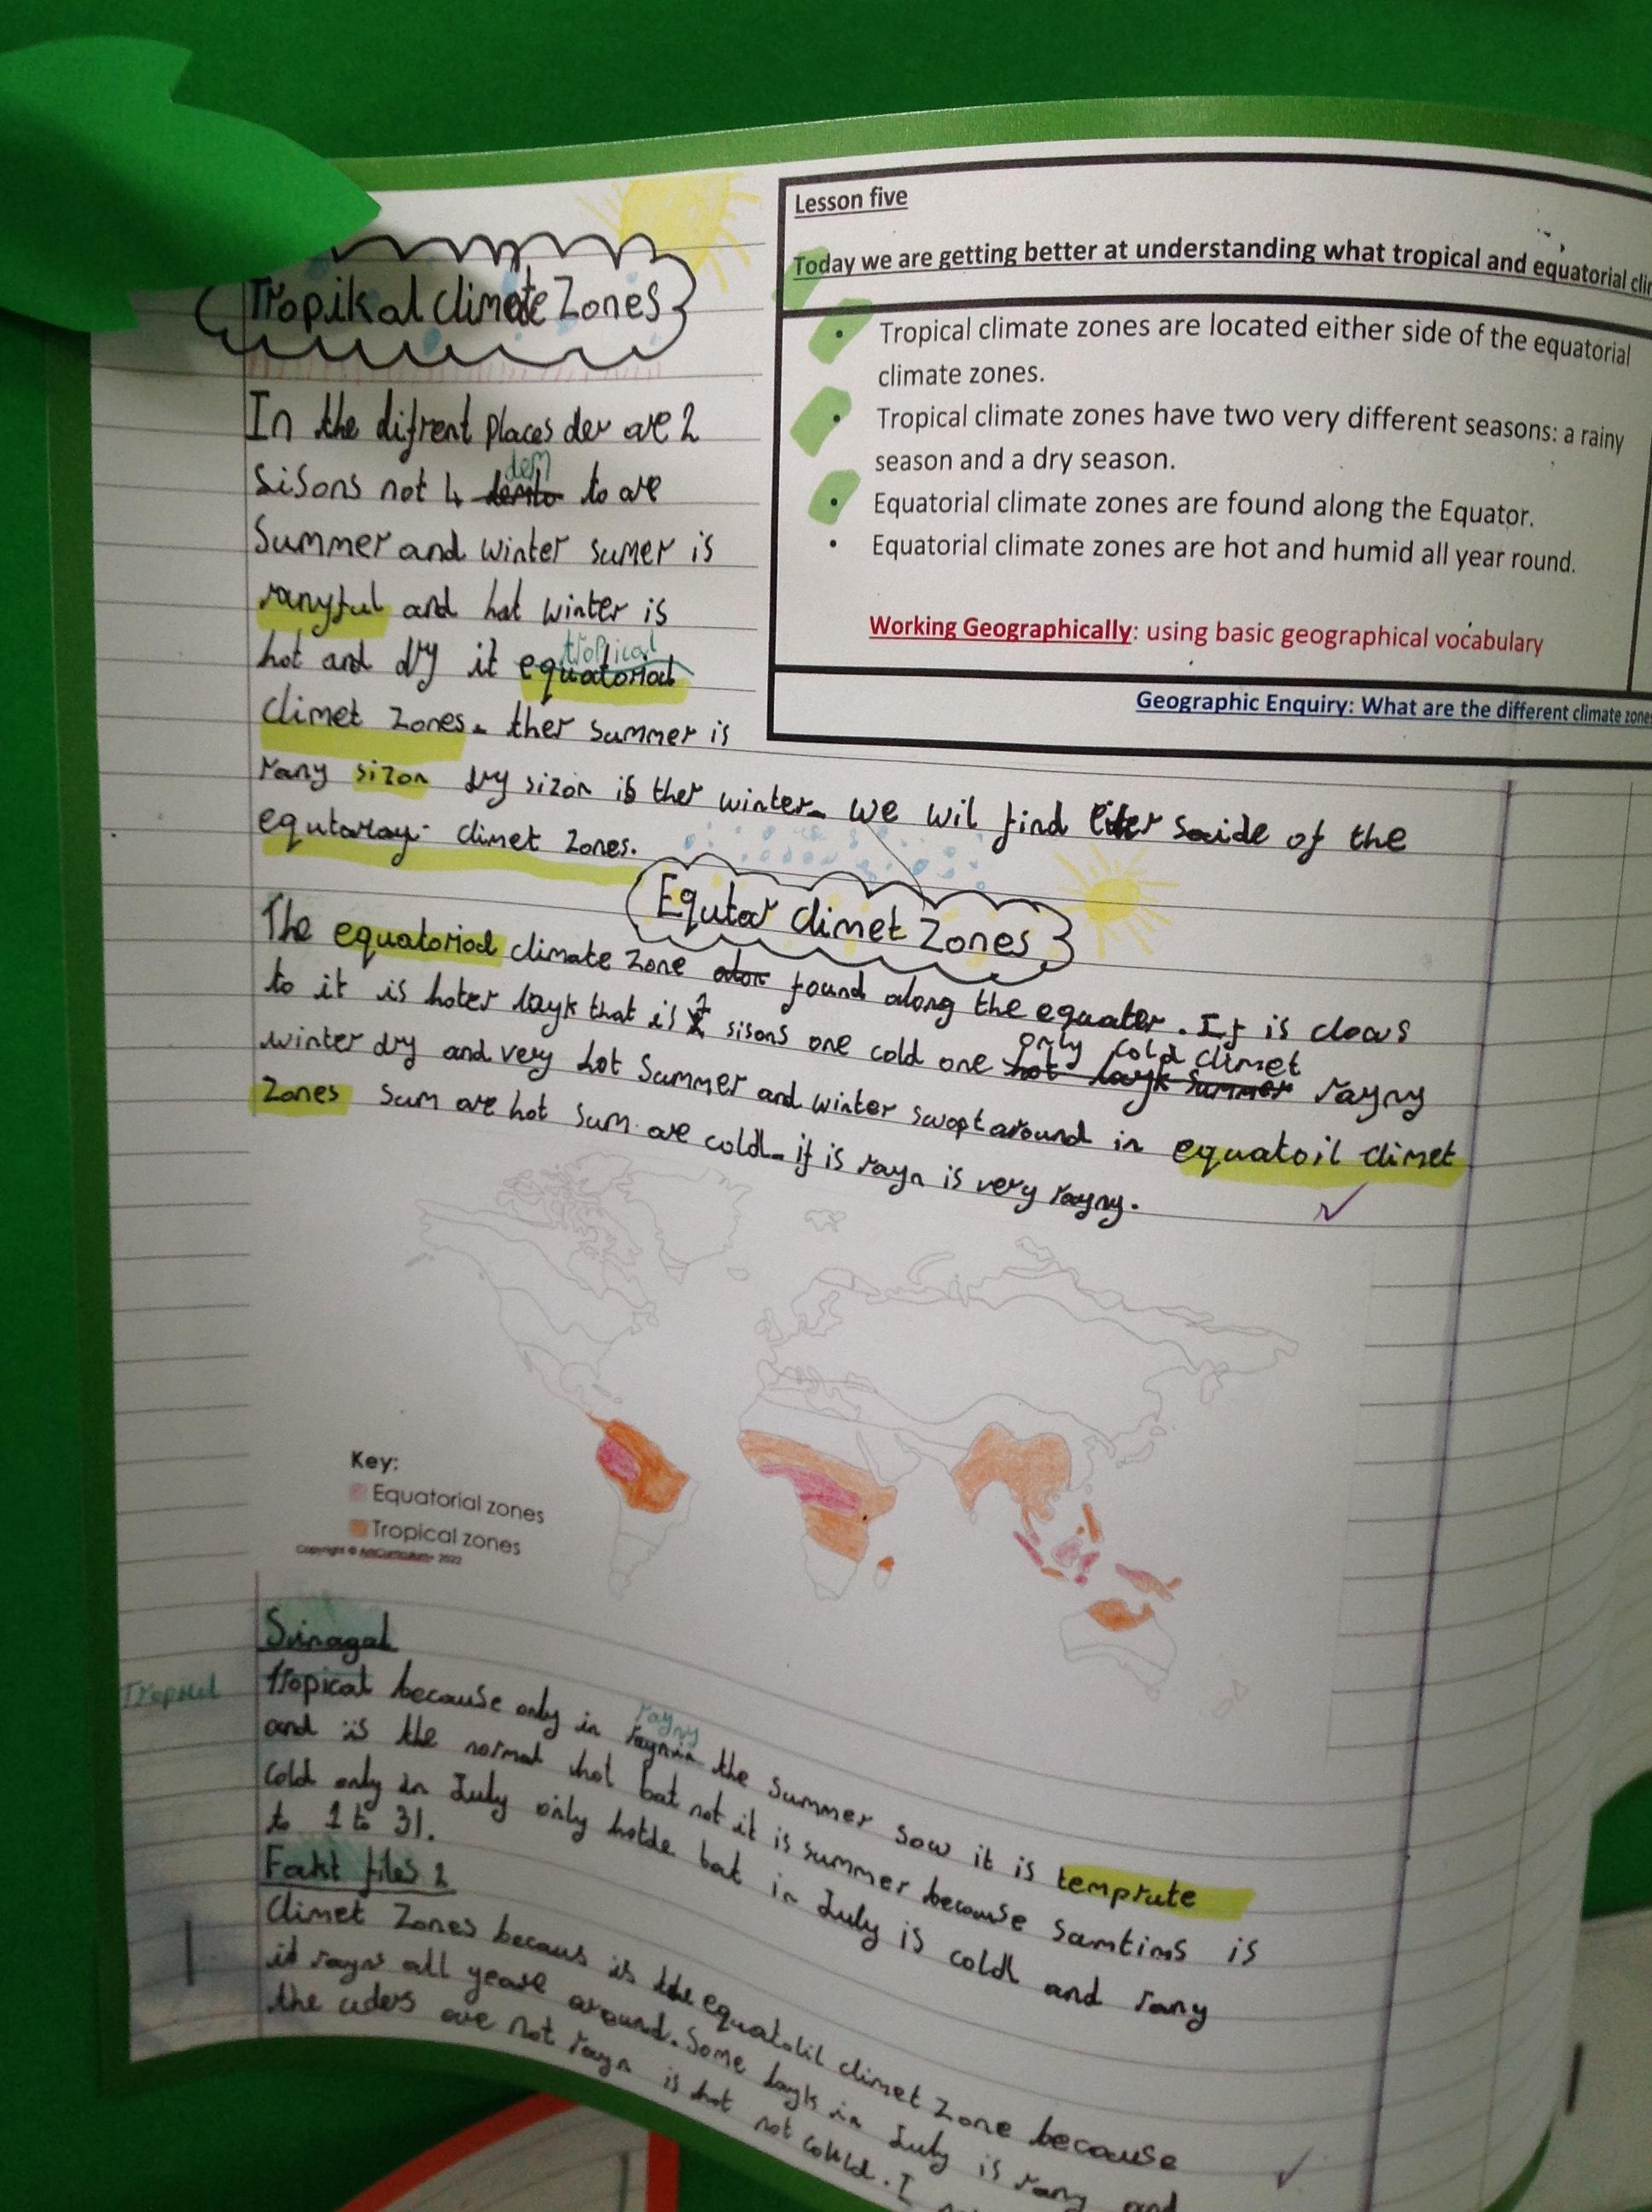 Lesson five
Today we are getting better at understanding what tropical and equatorial
Tropical climate zones are located either side of the equatorial
climate zones.
Tropical climate zones have two very different seasons: a rainy
season and a dry season.
Equatorial climate zones are found along the Equator.
Equatorial climate zones are hot and humid all year round.
Working Geographically: using basic geographical vocabulary
Geographic Enquiry: What are the different climate zones
Tropikal climate Zones
In the difrent places der are 2
sisons not 4 dem to are
Summer and winter sumer is
ranyful and hot winter is
hot and dry it tropical
climet zones. ther summer is
rany sizon dry sizon is ther winter. we wil find eiter saide of the
equtoray climet zones.
Equtor climet Zones
The equatoriod climate zone found along the equater. If is cloas
to it is hoter layk that is 2 sisons one cold one only cold climet rayny
winter dry and very hot Summer and winter swopt around in equatoil climet
Zones sum are hot sum are cold. if is rayn is very rayny.
Key:
Equatorial zones
Tropical zones
Copyright © 2022
Sinagal
Tropical
tropical because only in rayny the summer sow it is temprate
and is the normal hot but not it is summer because samtims is
cold only in July only hotde but in July is cold and rany
to 1 to 31.
Fakt files 2
Climet Zones becaus is the equatolil climet zone because
it rayns all yeare around. Some layk in July is rany and
the uders are not rayn is hot not could. I